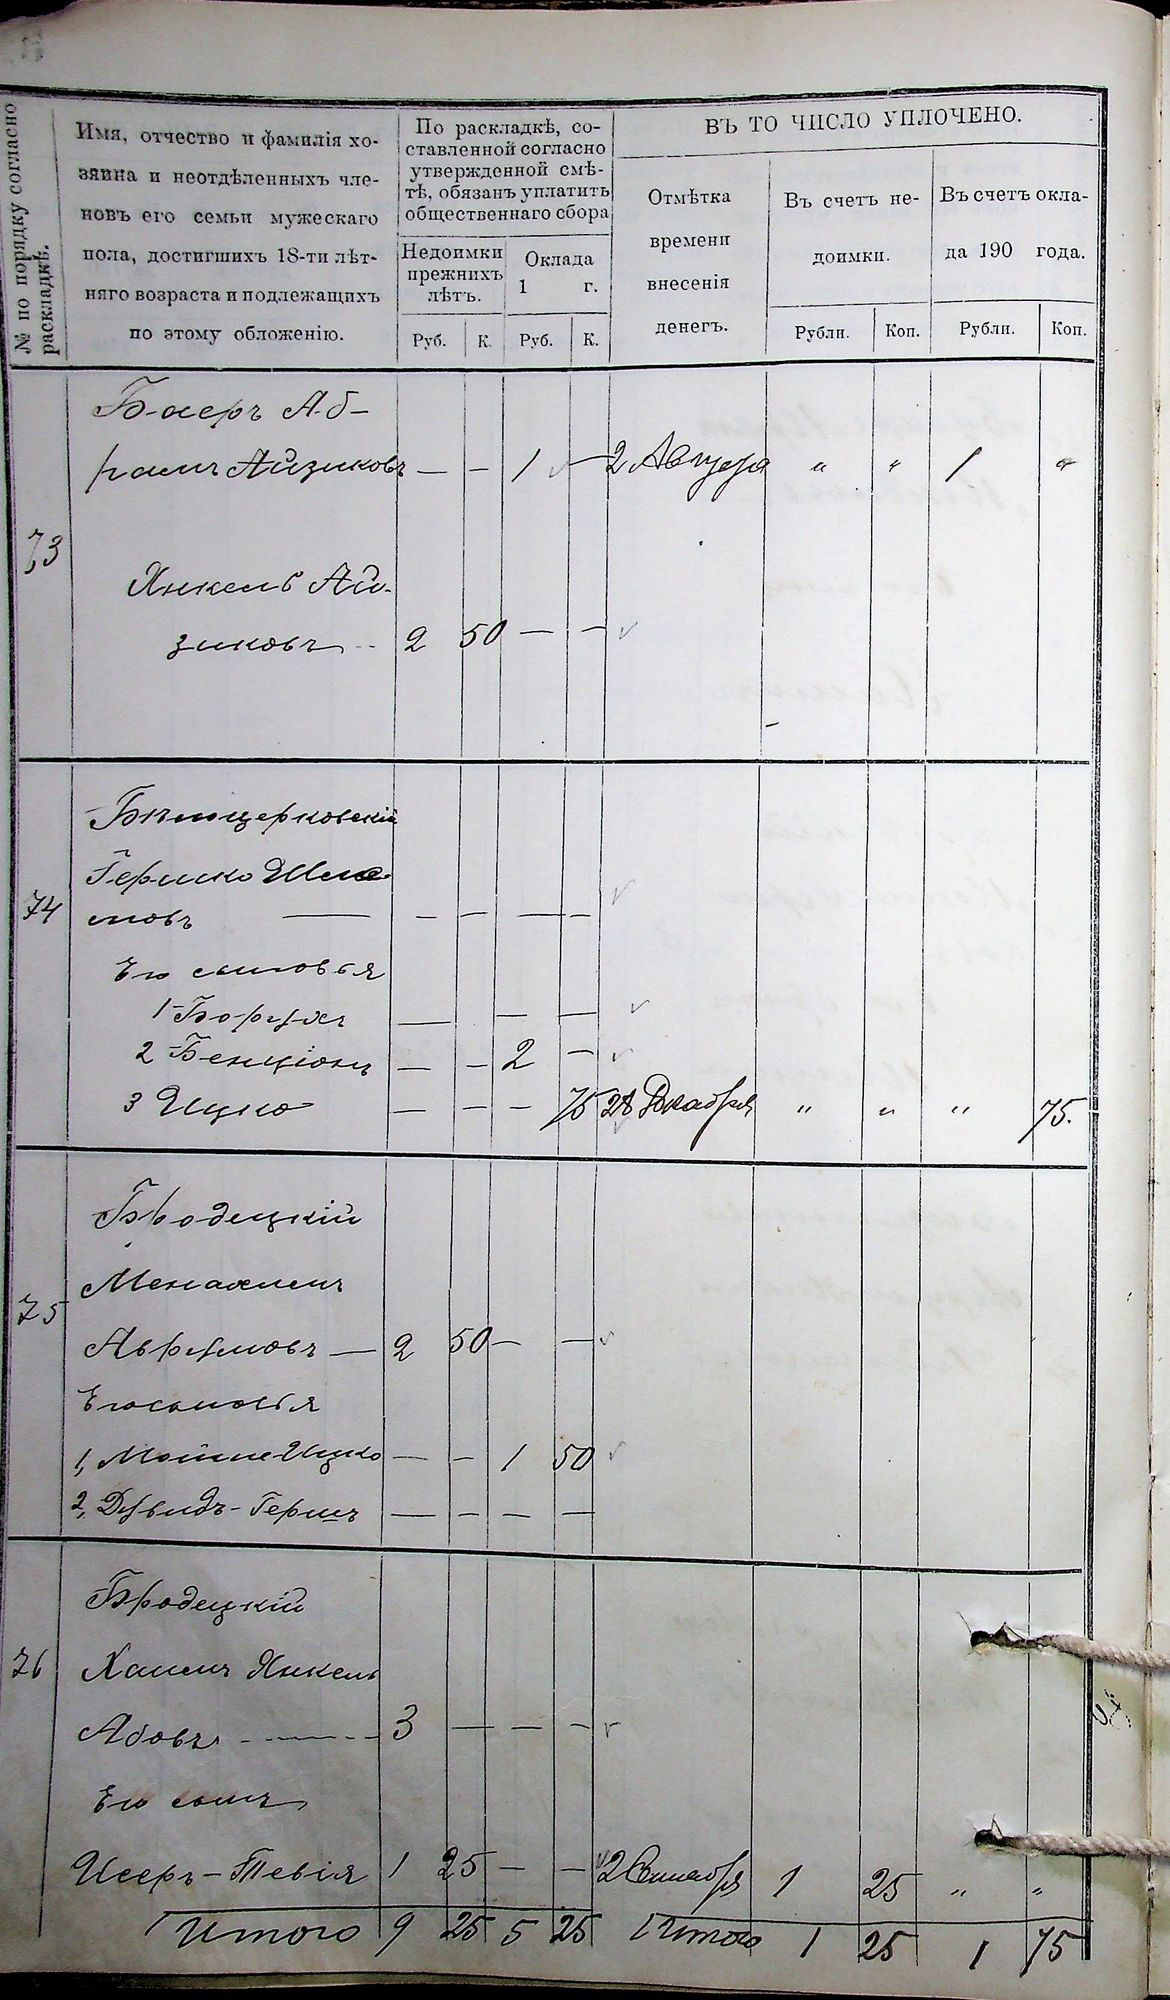 № по порядку согласно
раскладкѣ.
Имя, отчество и фамилія хо-
зяина и неотдѣленныхъ чле-
новъ его семьи мужескаго
пола, достигшихъ 18-ти лѣт-
няго возраста и подлежащихъ
по этому обложенію.
По раскладкѣ, со-
ставленной согласно
утвержденной смѣ-
тѣ, обязанъ уплатить
общественнаго сбора
Недоимки
прежнихъ
лѣтъ.
Оклада
1 г.
Руб. К. Руб. К.
ВЪ ТО ЧИСЛО УПЛОЧЕНО.
Отмѣтка
времени
внесенія
денегъ.
Въ счетъ не-
доимки.
Въ счетъ окла-
да 190 года.
Рубли. Коп. Рубли. Коп.
73
Баеръ Аб-
рамъ Айзиковъ — — 1 — 2 Августа " " 1 "
Янкель Ай-
зиковъ 2 50 — —
74
Бѣлоцерковскій
Гершко Шле-
мовъ — — — — —
Его сыновья
1 Борухъ — — —
2 Бенціонъ — — 2 —
3 Ицко — — — 75 28 Декабря " " " 75.
75
Бродецкій
Менахемъ
Аврумовъ — 2 50 — —
Его сыновья
1, Мойше-Ицко — — 1 50
2, Дувидъ-Гершъ — — — —
76
Бродецкій
Хаимъ Янкель
Абовъ 3 — — —
Его сынъ
Исеръ-Тевія 1 25 — — 2 Сентября 1 25 " "
Итого 9 25 5 25 Итого 1 25 1 75